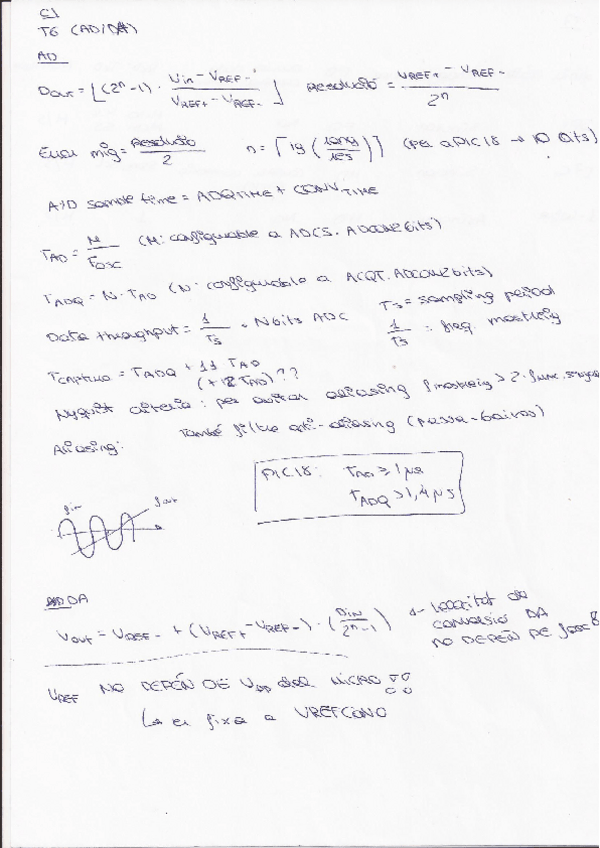 CI
T6 (AD/DA)
AD
Dout = ⌊(2ⁿ-1) · (Vin - VREF-) / (VREF+ - VREF-)⌋ Resolució = (VREF+ - VREF-) / 2ⁿ
Error mig = Resolució / 2 n = ⌈lg (rang / res)⌉ (per a PIC18 → 10 bits)
A/D sample time = ADQTIME + CONVTIME
TAD = M / FOSC (M: configurable a ADCS. ADCON2 bits)
TADQ = N · TAD (N: configurable a ACQT. ADCON2 bits)
Data throughput = 1/Ts · N bits ADC Ts = sampling period
1/Ts : freq. mostreig
Tcaptura = TADQ + 11 TAD
(+ 12 TAD)??
Nyquist criteria: per evitar aliasing fmostreig > 2 · fmax.
També filtre anti-aliasing (passa-baixos)
Aliasing:
PIC18: TAD ≥ 1 µs
TADQ > 1,4 µs
fin fout
DA
Vout = VREF- + (VREF+ - VREF-) · (DIN / 2ⁿ-1) ← Velocitat de
conversió DA
NO DEPÈN DE fosc
VREF NO DEPÈN DE VDD del MICRO !!
↳ es fixa a VREFCON0